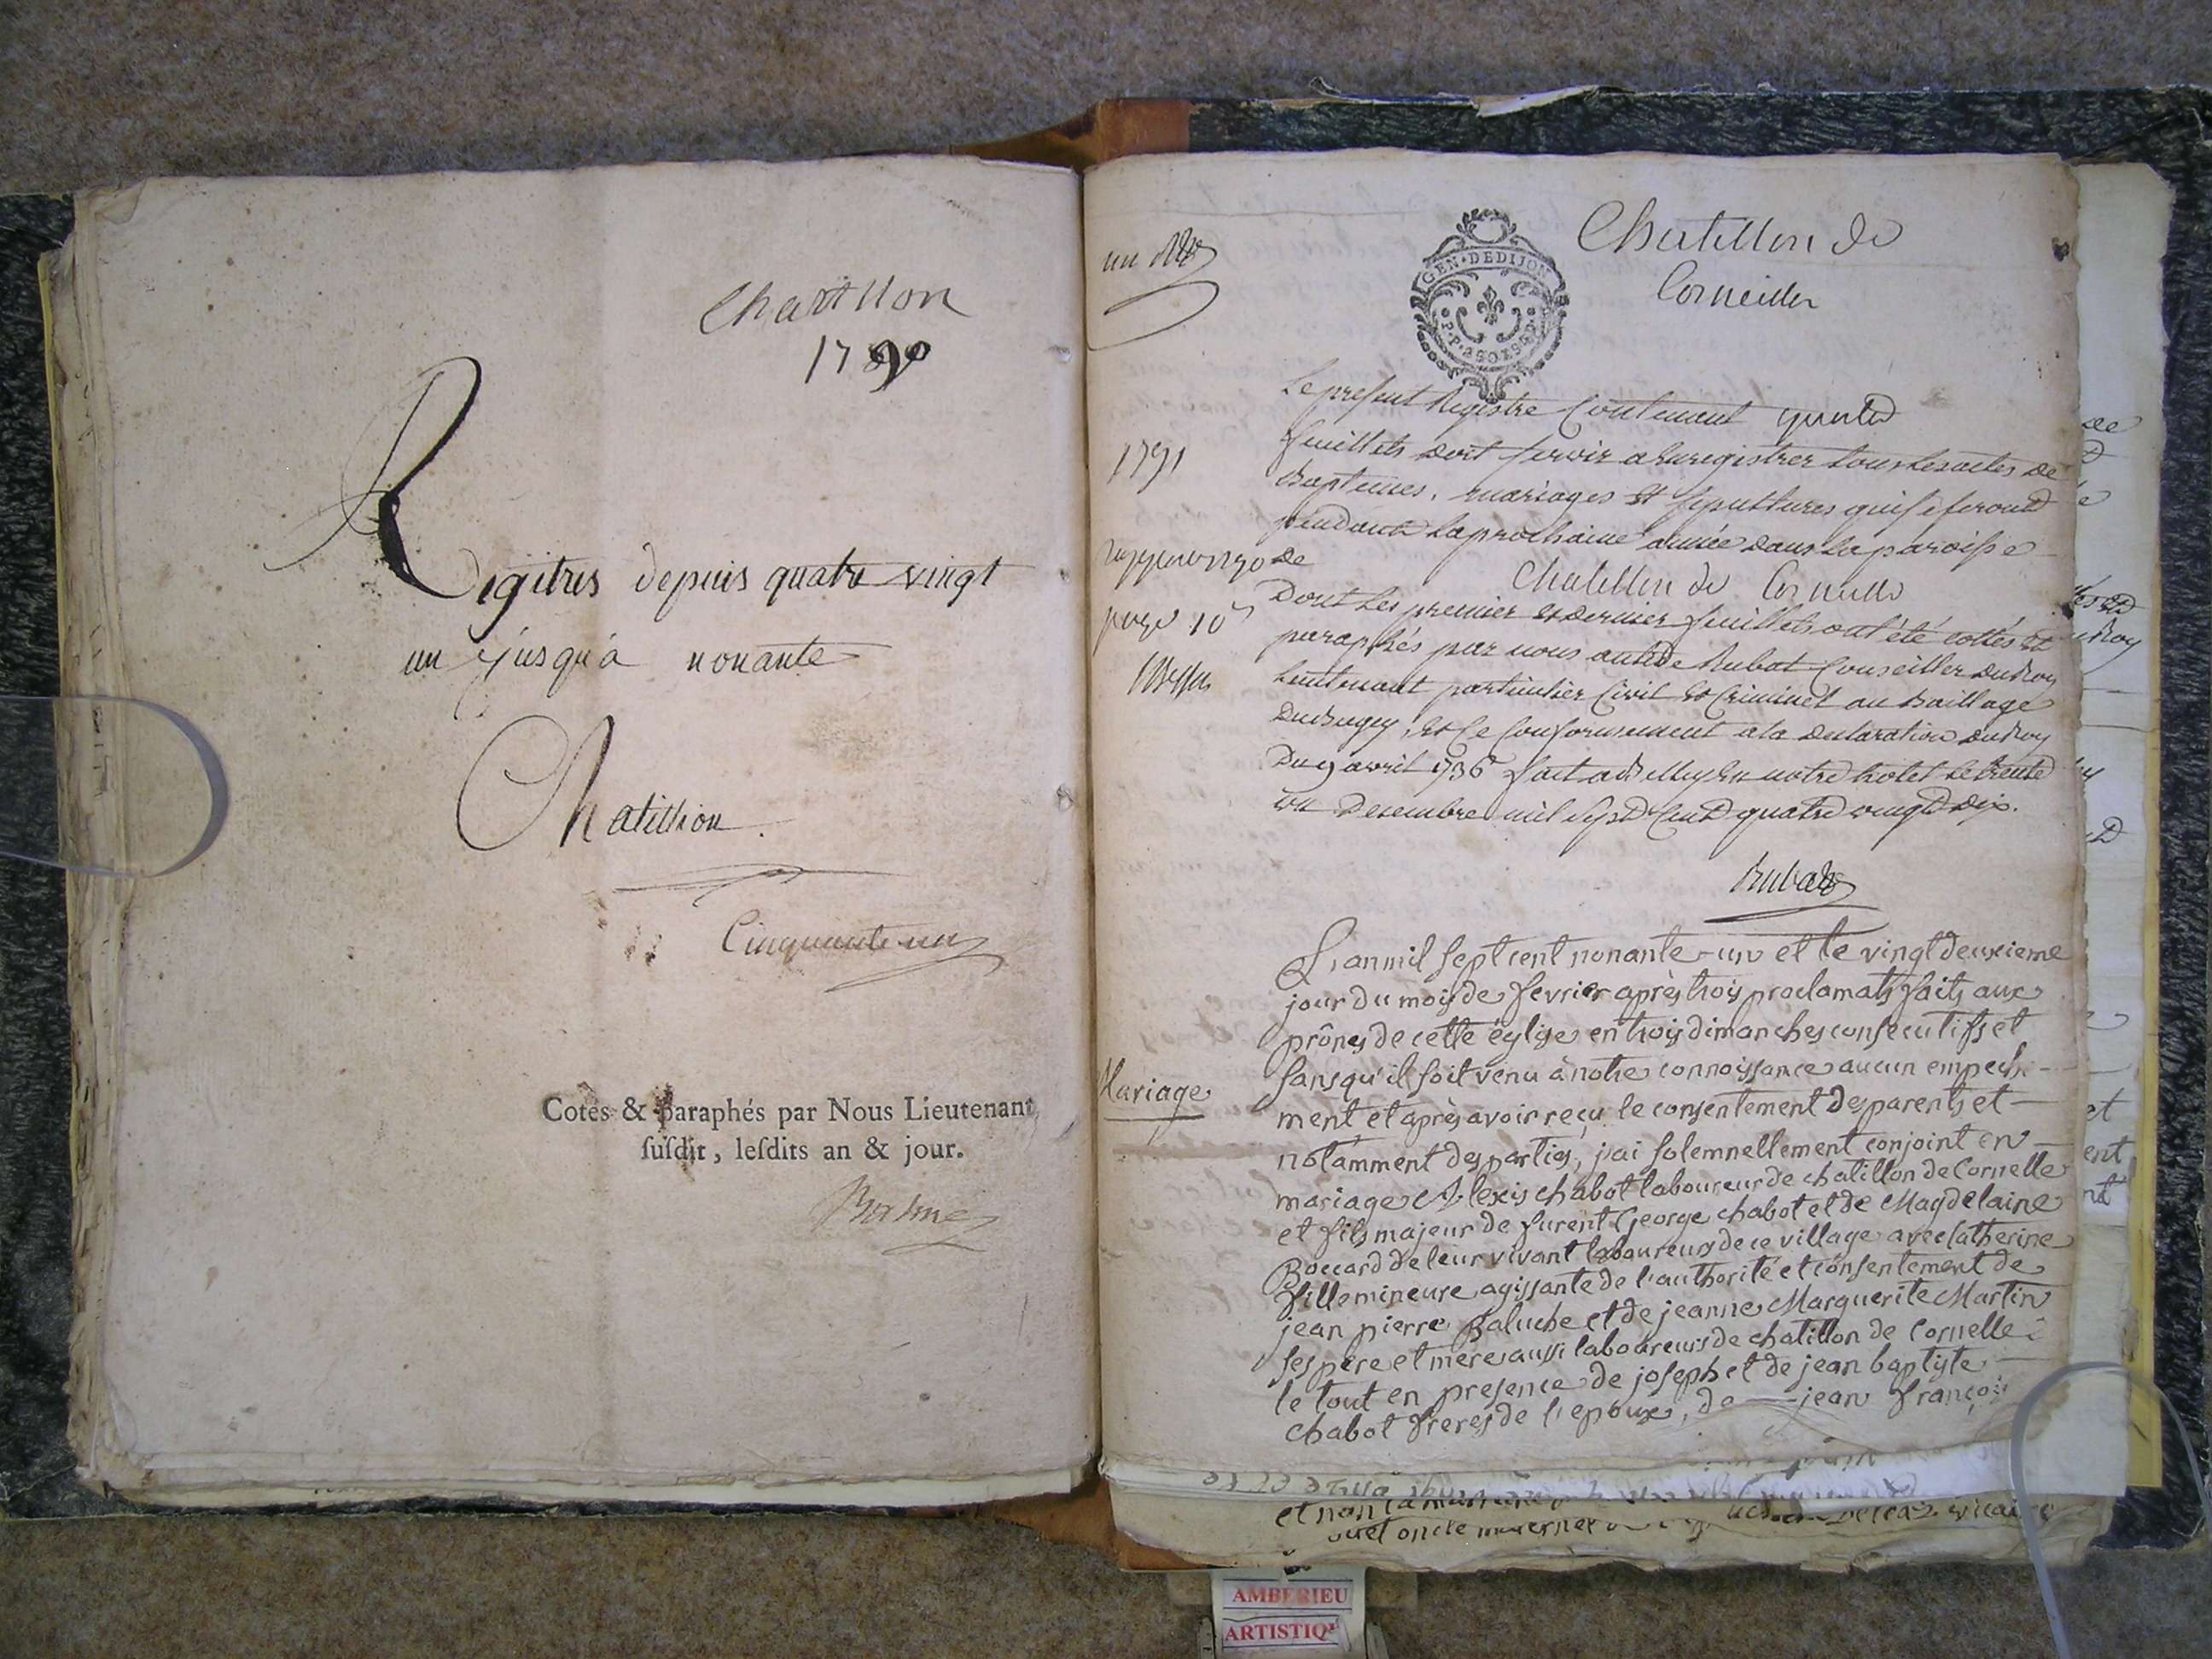 Chatillon
1790
Regitres depuis quatre vingt
un jusqu'à nonante
Chatillion.
Cinquante un
Cotés & paraphés par Nous Lieutenant
ſuſdit, leſdits an & jour.
un
GEN·DEDIJON
Chatillon de
Corneille
1791
Le present Registre Contenant
feuillets doit servir a Enregistrer tous les actes de
Baptemes, mariages et sepultures qui se feront
pendant la prochaine année dans la paroisse
de
Chatillon de Corneille
page 10
Dont les premier et dernier feuillets ont été cottés et
paraphés par nous Rubat Conseiller du Roy
Lieutenant particulier Civil et Criminel au Baillage
Du Bugey, et ce Conformement a la declaration du Roy
Du 9 avril 1736 fait a Belley en notre hotel le trente
un Decembre mil sept Cent quatre vingt dix.
Rubat
L'an mil sept cent nonante-un et le vingt deuxieme
jour du mois de fevrier après trois proclamats faits aux
prônes de cette église en trois dimanches consecutifs et
Mariage
sans qu'il soit venu à notre connoissance aucun empech-
ment et après avoir reçu le consentement des parents et
notamment des parties, j'ai solemnellement conjoint en
mariage Alexis chabot laboureur de chatillon de Cornelle
et fils majeur de furent George chabot et de Magdelaine
Boccard de leur vivant laboureurs de ce village avec Catherine
fille mineure agissante de l'authorité et consentement de
jean pierre Baluche et de jeanne Marguerite Martin
ses pere et mere aussi laboureurs de chatillon de Cornelle
le tout en presence de joseph et de jean baptiste
chabot freres de l'epoux, de jean françois
et non
et oncle maternel
vicaire
AMBERIEU
ARTISTIQ